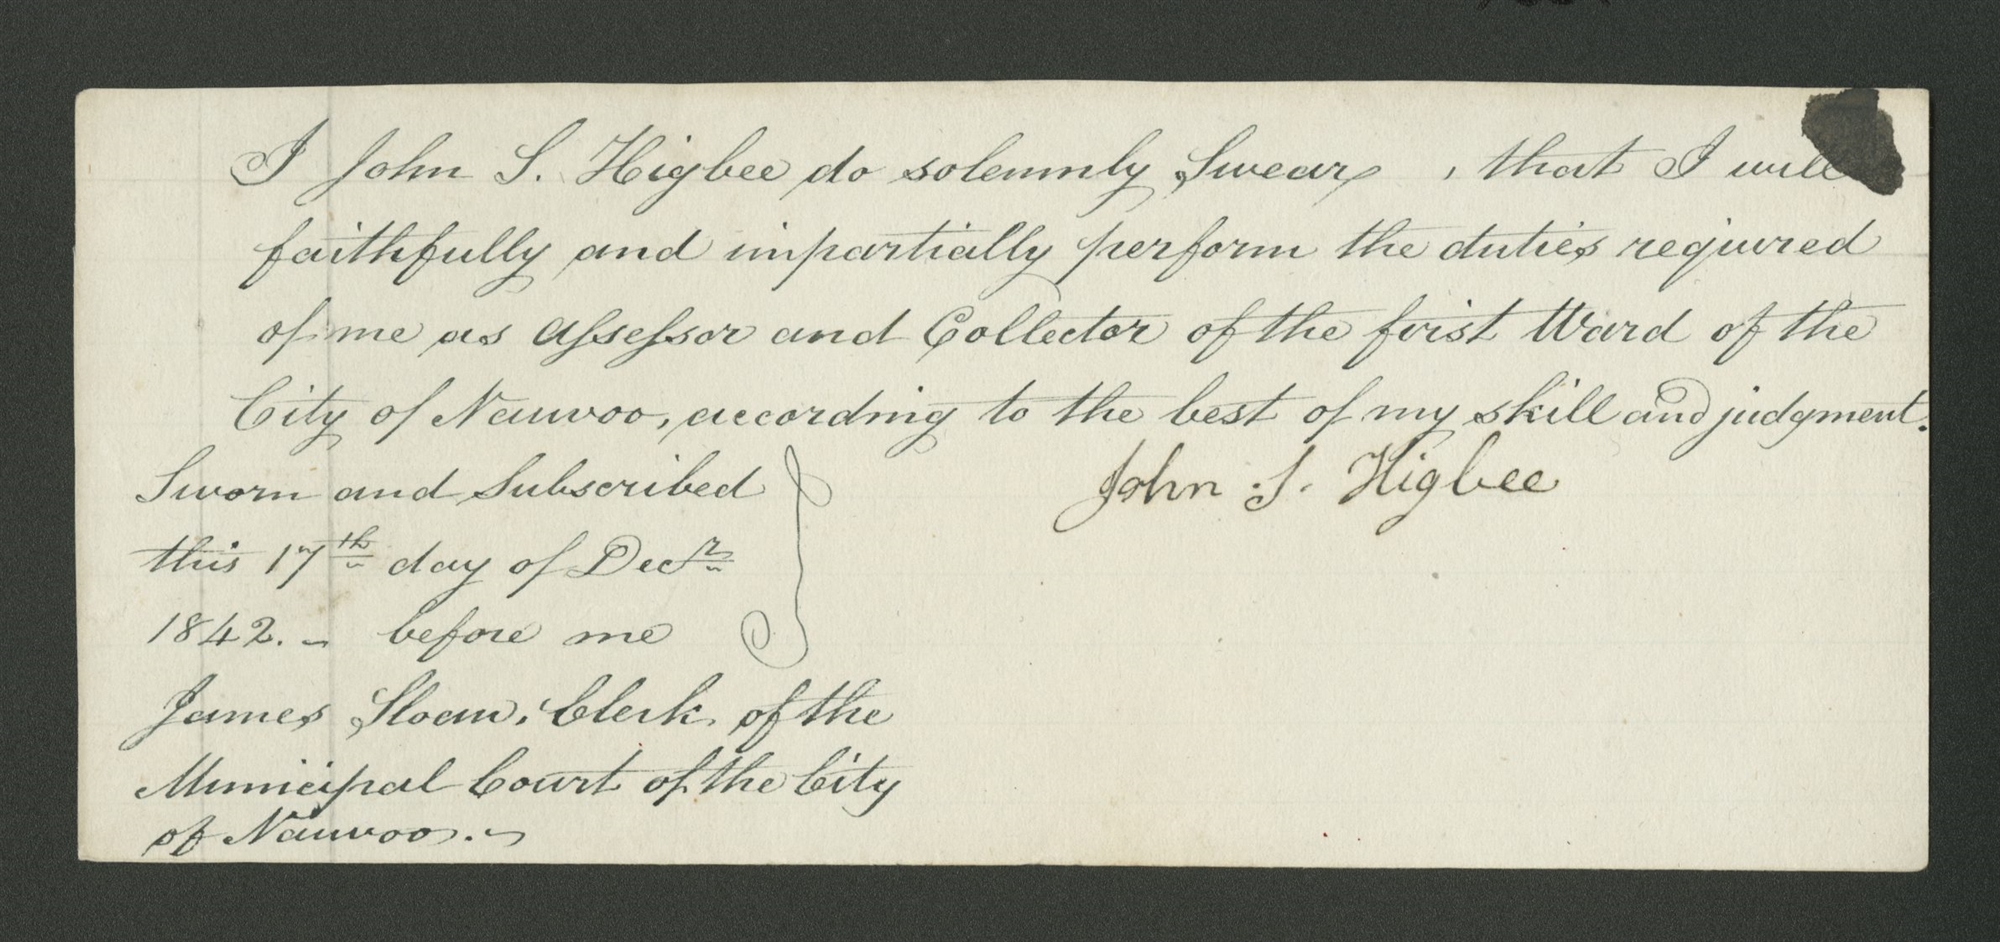 I John S. Higbee do solemnly Swear, that I will
faithfully and impartially perform the duties required
of me as Assessor and Collector of the first Ward of the
City of Nauvoo, according to the best of my skill and judgment.
John S. Higbee
Sworn and Subscribed
this 17th day of Decr
1842. - before me
James Sloan, Clerk of the
Municipal Court of the City
of Nauvoo. -